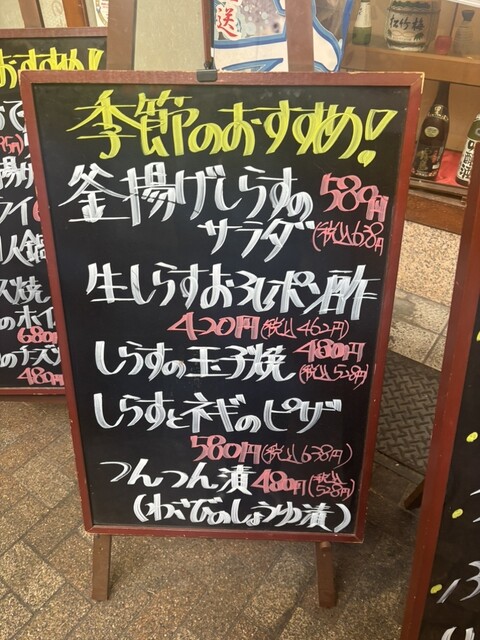 季節のおすすめ!
釜揚げしらすの 580円
サラダ (税込638円
生しらすおろしポン酢
420円(税込462円)
しらすの玉子焼 480円
(税込528円)
しらすとネギのピザ
580円(税込638円)
つんつん漬 480円(税込528円)
(わさびのしょうゆ漬)
おすすめ!
人鍋
ス焼
のホイ
680円
のチーズ
480円
松竹梅
送